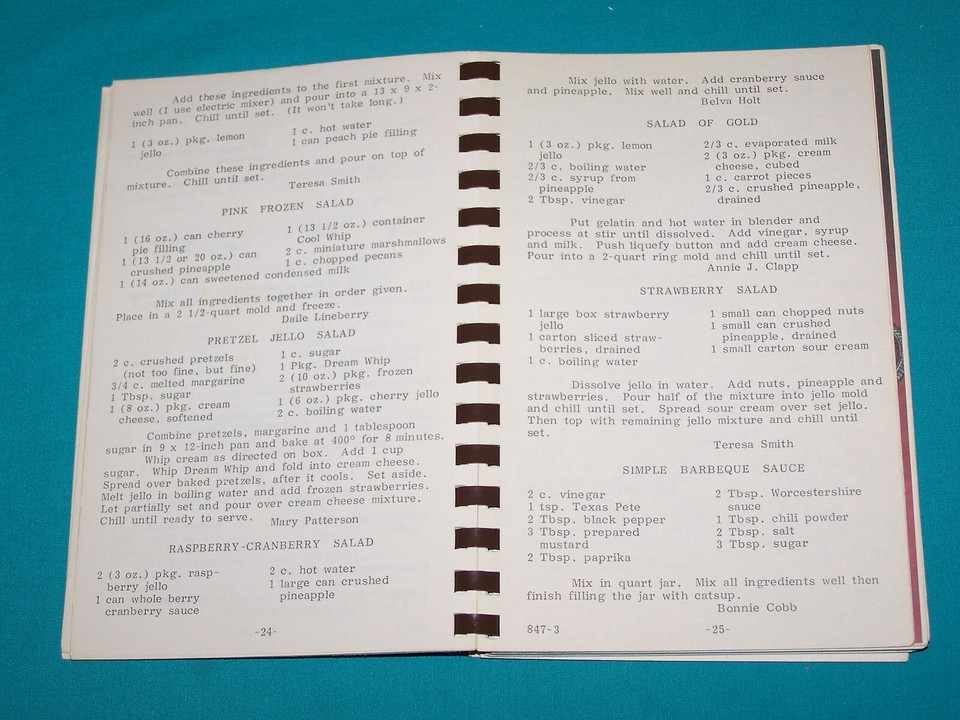 Add these ingredients to the first mixture. Mix
well (I use electric mixer) and pour into a 13 x 9 x 2-
inch pan. Chill until set. (It won't take long.)
1 (3 oz.) pkg. lemon
jello
1 c. hot water
1 can peach pie filling
Combine these ingredients and pour on top of
mixture. Chill until set.
Teresa Smith
PINK FROZEN SALAD
1 (16 oz.) can cherry
pie filling
1 (13 1/2 or 20 oz.) can
crushed pineapple
1 (14 oz.) can sweetened condensed milk
1 (13 1/2 oz.) container
Cool Whip
2 c. miniature marshmallows
1 c. chopped pecans
Mix all ingredients together in order given.
Place in a 2 1/2-quart mold and freeze.
Daile Lineberry
PRETZEL JELLO SALAD
2 c. crushed pretzels
(not too fine, but fine)
3/4 c. melted margarine
1 Tbsp. sugar
1 (8 oz.) pkg. cream
cheese, softened
1 c. sugar
1 Pkg. Dream Whip
2 (10 oz.) pkg. frozen
strawberries
1 (6 oz.) pkg. cherry jello
2 c. boiling water
Combine pretzels, margarine and 1 tablespoon
sugar in 9 x 12-inch pan and bake at 400° for 8 minutes.
Whip cream as directed on box. Add 1 cup
sugar. Whip Dream Whip and fold into cream cheese.
Spread over baked pretzels, after it cools. Set aside.
Melt jello in boiling water and add frozen strawberries.
Let partially set and pour over cream cheese mixture.
Chill until ready to serve.
Mary Patterson
RASPBERRY-CRANBERRY SALAD
2 (3 oz.) pkg. rasp-
berry jello
1 can whole berry
cranberry sauce
2 c. hot water
1 large can crushed
pineapple
-24-
Mix jello with water. Add cranberry sauce
and pineapple. Mix well and chill until set.
Belva Holt
SALAD OF GOLD
1 (3 oz.) pkg. lemon
jello
2/3 c. boiling water
2/3 c. syrup from
pineapple
2 Tbsp. vinegar
2/3 c. evaporated milk
2 (3 oz.) pkg. cream
cheese, cubed
1 c. carrot pieces
2/3 c. crushed pineapple,
drained
Put gelatin and hot water in blender and
process at stir until dissolved. Add vinegar, syrup
and milk. Push liquefy button and add cream cheese.
Pour into a 2-quart ring mold and chill until set.
Annie J. Clapp
STRAWBERRY SALAD
1 large box strawberry
jello
1 carton sliced straw-
berries, drained
1 c. boiling water
1 small can chopped nuts
1 small can crushed
pineapple, drained
1 small carton sour cream
Dissolve jello in water. Add nuts, pineapple and
strawberries. Pour half of the mixture into jello mold
and chill until set. Spread sour cream over set jello.
Then top with remaining jello mixture and chill until
set.
Teresa Smith
SIMPLE BARBEQUE SAUCE
2 c. vinegar
1 tsp. Texas Pete
2 Tbsp. black pepper
3 Tbsp. prepared
mustard
2 Tbsp. paprika
2 Tbsp. Worcestershire
sauce
1 Tbsp. chili powder
2 Tbsp. salt
3 Tbsp. sugar
Mix in quart jar. Mix all ingredients well then
finish filling the jar with catsup.
Bonnie Cobb
847-3
-25-